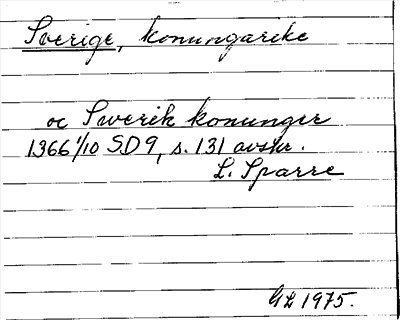 Sverige, konungarike
oc Swerik konunger
1366 1/10 SD 9, s. 131 avskr.
L. Sparre
GL 1975.